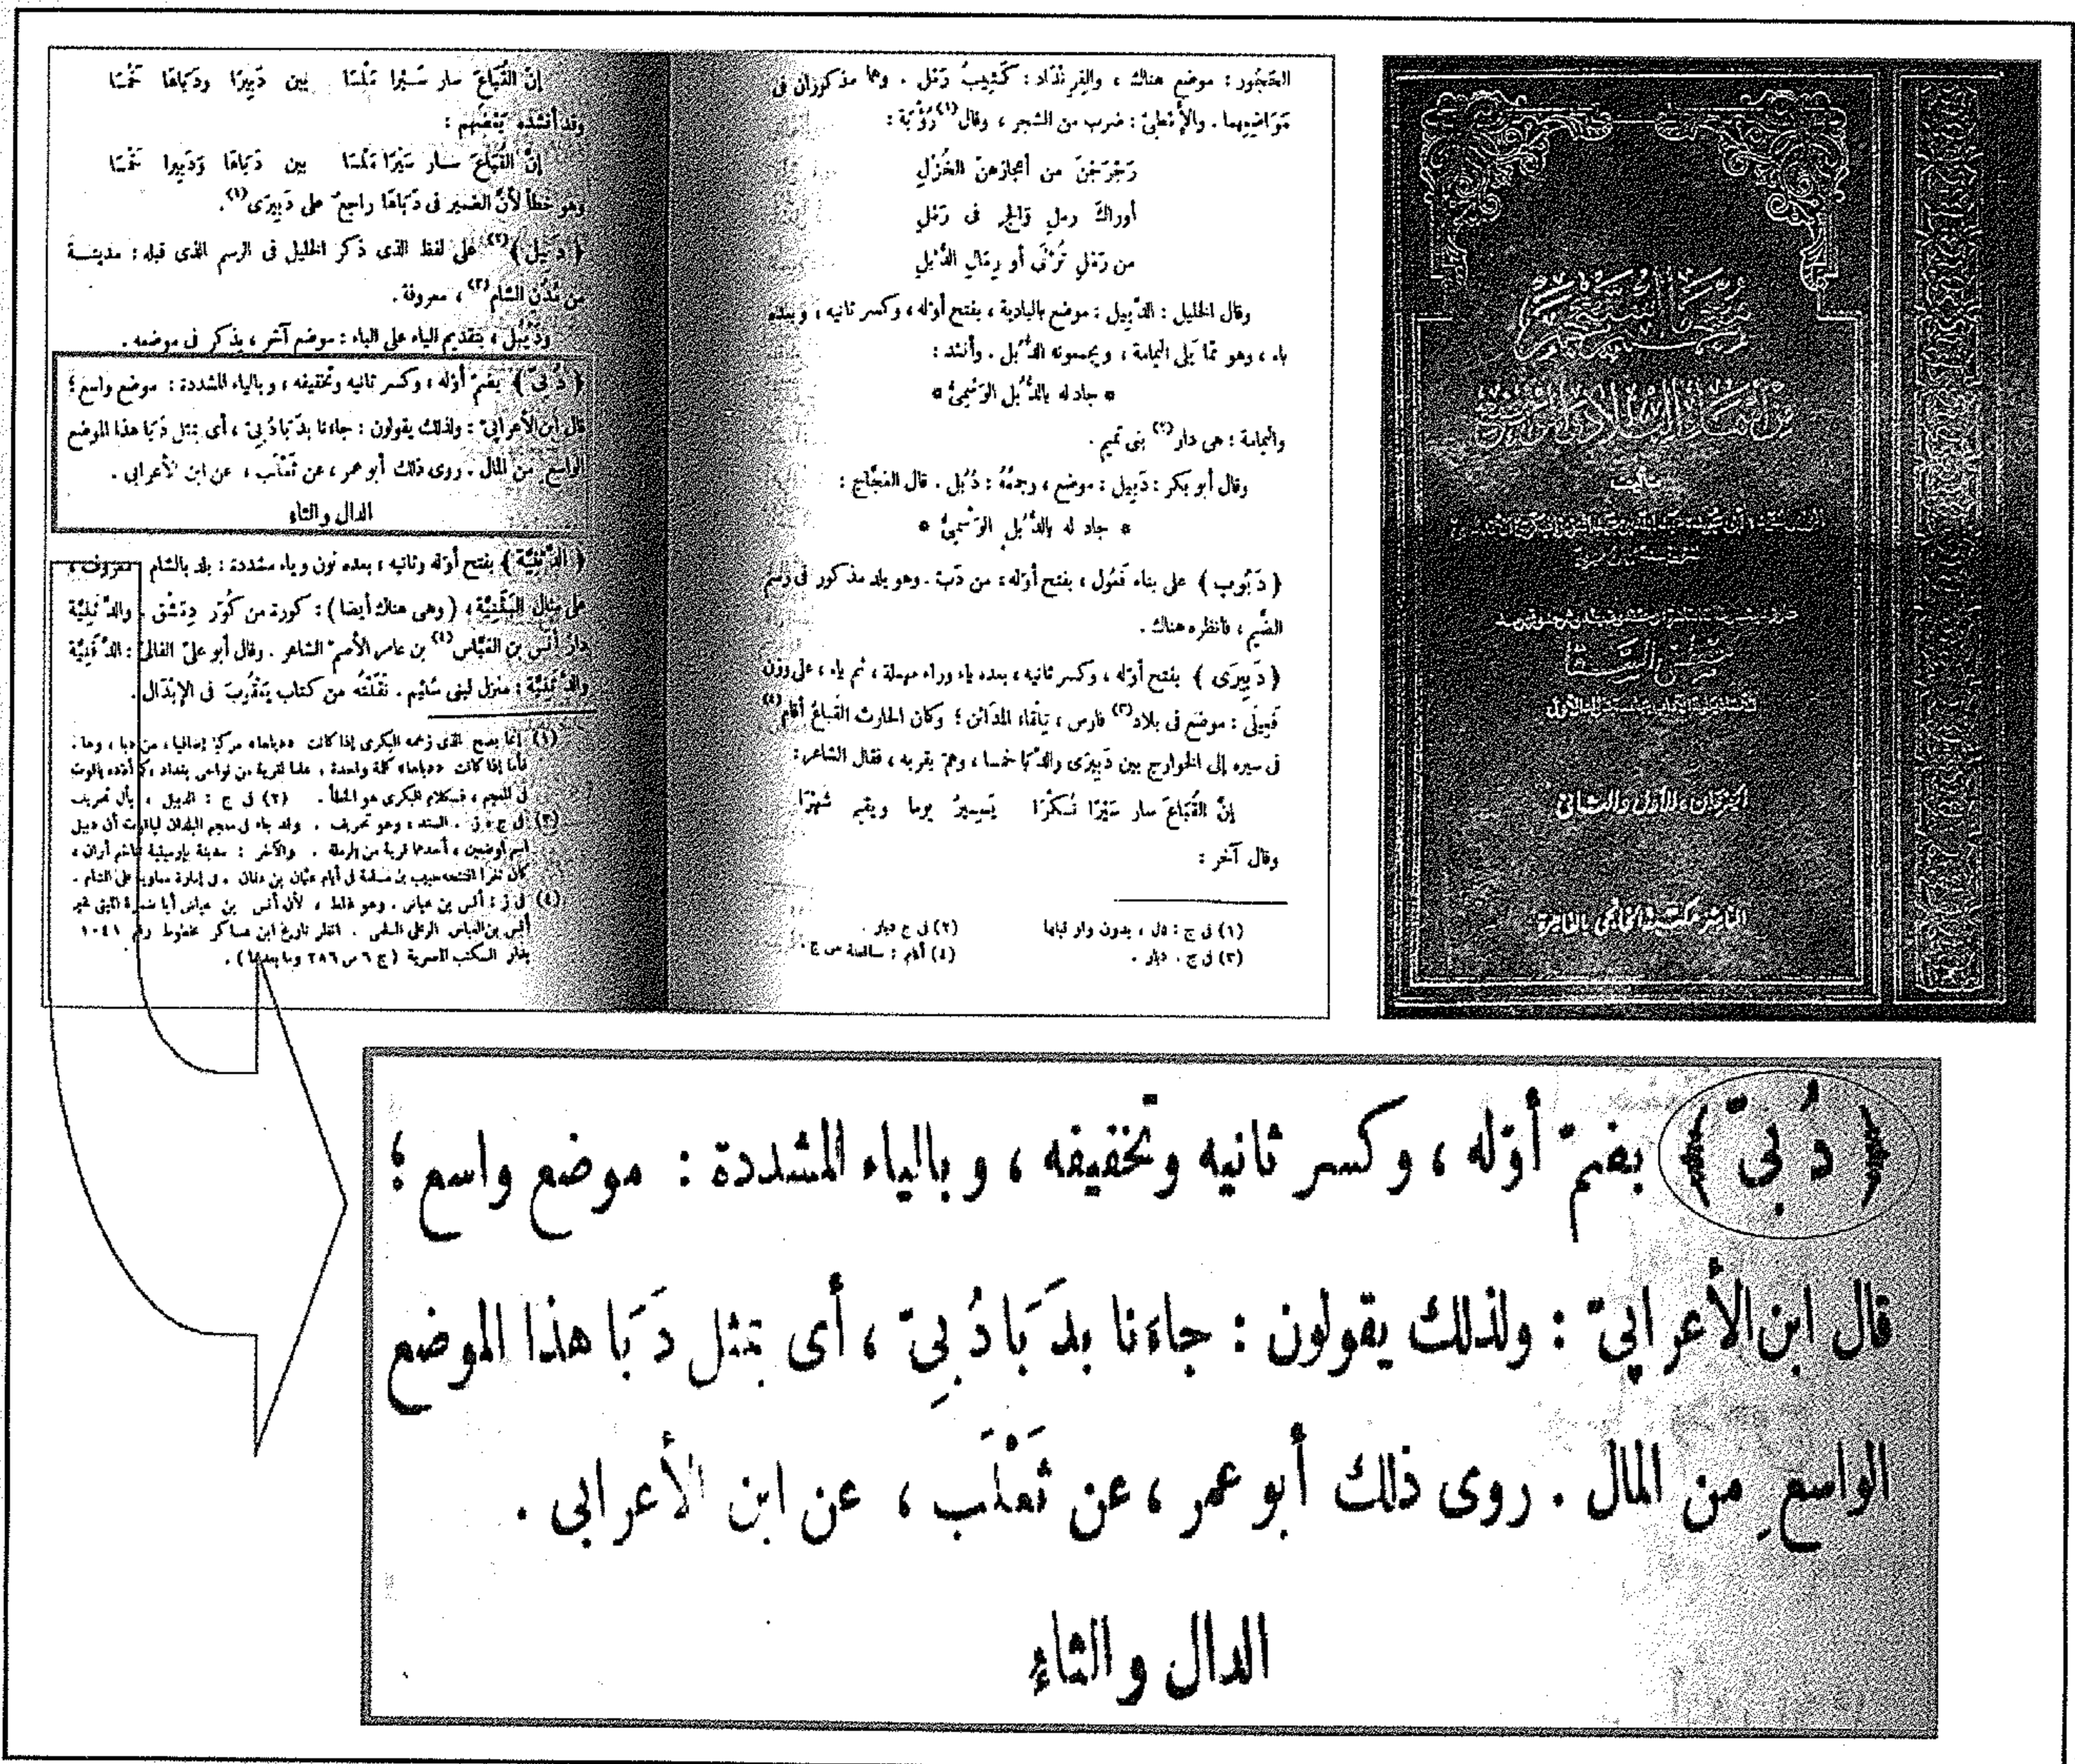 معجم ما استعجم
من أسماء البلاد والمواضع
تأليف
مصطفى السقا
الجزءان الأول والثاني
الناشر مكتبة الخانجي بالقاهرة
موضع هناك ، والفرنداد : كثيب رمل . وهما مذكوران فى
مواضعهما . والأمطىّ : ضرب من الشجر ، وقال(١) رؤبة :
رَجْرَجْنَ من أعجازهنّ الخُزَّلِ
أوراكَ رملٍ وَالجٍ فى رَمْلِ
من رَمْلِ تُرْنَى أو رِمَالِ الدُّبْلِ
وقال الخليل : الدَّبِيل : موضع بالبادية ، بفتح أوّله ، وكسر ثانيه ، وبعده
ياء ، وهو ممّا يلى اليمامة ، ويجمعونه الدُّبُل . وأنشد :
* جاد له بالدُّبُل الوَسْمِىُّ *
واليمامة : هى دار(٢) بنى تميم .
وقال أبو بكر : دَبِيل : موضع ، وجمعُهُ : دُبُل . قال العَجَّاج :
* جاد له بالدُّبُل الوَسْمِىُّ *
﴿ دَبُّوب ﴾ على بناء فَعُّول ، بفتح أوّله ، من دَبّ . وهو بلد مذكور فى رسم
الضَّيْم ، فانظره هناك .
﴿ دَبِيرَى ﴾ بفتح أوّله ، وكسر ثانيه ، بعده ياء وراء مهملة ، ثم ياء ، على وزن
فَعِيلَى : موضع فى بلاد(٣) فارس ، تِلْقاء المدَائن ؛ وكان الحارث القُباعُ أقام(٤)
فى سيره إلى الخوارج بين دَبِيرَى والدَّبَا خمسا ، وهمّ بقربه ، فقال الشاعر :
إنّ القُبَاعَ سار سَيْرًا نُكْرَا يَسِيرُ يوما ويقيم شَهْرَا
وقال آخر :
(١) فى ج : دل ، بدون واو قبلها (٢) فى ج ديار .
(٣) فى ج . ديار . (٤) أقام : ساقطة من ج .
إنّ القُبَاعَ سار سَيْرا مَلْسَا بين دَبِيرَا ودَبَاهَا خَمْسَا
وقد أنشده بَعْضُهم :
إنّ القُبَاعَ سار سَيْرًا مَلْسَا بين دَبَاهَا وَدَبِيرا خَمْسَا
وهو خطأ لأنّ الضمير فى دَبَاهَا راجع على دَبِيرَى(١) .
﴿ دَبِيل ﴾(٢) على لفظ الذى ذكر الخليل فى الرسم الذى قبله : مدينة
من مُدُن الشام(٣) ، معروفة .
ودَيْبُل ، بتقديم الياء على الباء : موضع آخر ، يذكر فى موضعه .
﴿ دُبِىّ ﴾ بضمّ أوّله ، وكسر ثانيه وتخفيفه ، وبالياء المشددة : موضع واسع ؛
قال ابن الأعرابىّ : ولذلك يقولون : جاءنا بدَبَا دُبِىّ ، أى بمثل دَبَا هذا الموضع
الواسع من المال . روى ذلك أبو عمر ، عن ثَعْلَب ، عن ابن الأعرابى .
الدال والثاء
﴿ الدَّثَنِيَّة ﴾ بفتح أوّله وثانيه ، بعده نون وياء مشددة : بلد بالشام معروف ،
على مثال البَثَنِيَّة ، (وهى هناك أيضا) : كورة من كُوَر دِمَشْق . والدَّثَنِيَّة
دار أنس بن العَبَّاس(٤) بن عامر الأصمّ الشاعر . وقال أبو علىّ القالىّ : الدَّفَنِيَّة
والدَّثَنِيَّة : منزل لبنى سُلَيْم . نَقَلْتُه من كتاب يَعْقُوبَ فى الإبْدَال .
(١) إنما يصح الذى زعمه البكرى إذا كانت «دباها» مركبا إضافيا ، من دبا ، وها .
فأما إذا كانت «دباها» كلمة واحدة ، علما لقرية من نواحى بغداد ، كما أورده ياقوت
فى المعجم ، فكلام البكرى هو الخطأ . (٢) فى ج : الدبيل ، بأل تحريف
(٣) فى ج ، ز . السند ، وهو تحريف . وقد جاء فى معجم البلدان لياقوت أن دبيل
اسم لموضعين ، أحدهما قرية من الرملة . والآخر : مدينة بإرمينية تتاخم أران ،
كان ثغرا افتتحه حبيب بن مسلمة فى أيام عثمان بن عفان ، فى إمارة معاوية على الشام .
(٤) فى ز : أنس بن عياض . وهو غلط ، لأن أنس بن عياض أبا ضمرة الليثى غير
أنس بن العباس الرعلى السلمى . انظر تاريخ ابن عساكر مخطوط رقم ١٠٤١
بدار الكتب المصرية (ج ٦ ص ٢٨٦ وما بعدها) .
﴿ دُبِىّ ﴾ بضمّ أوّله ، وكسر ثانيه وتخفيفه ، وبالياء المشددة : موضع واسع ؛
قال ابن الأعرابىّ : ولذلك يقولون : جاءنا بدَبَا دُبِىّ ، أى بمثل دَبَا هذا الموضع
الواسعِ من المال . روى ذلك أبو عمر ، عن ثَعْلَب ، عن ابن الأعرابى .
الدال والثاء